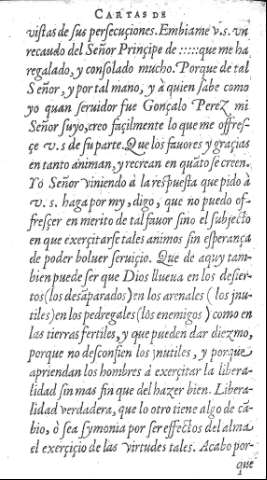 CARTAS DE
vistas de sus persecuçiones. Embiame v.s. vn
recaudo del Señor Prinçipe de :::::que me ha
regalado, y consolado mucho. Porque de tal
Señor, y por tal mano, y à quien sabe como
yo quan seruidor fue Gonçalo Perez mi
Señor suyo, creo façilmente lo que me offres-
çe v.s de su parte. Que los fauores y graçias
en tanto animan, y recrean en quãto se creen.
Yo Señor viniendo à la respuesta que pido à
v. s. haga por my, digo, que no puedo of-
fresçer en merito de tal fauor sino el subjecto
en que exerçitarse tales animos sin esperança
de poder boluer seruiçio. Que de aquy tam-
bien puede ser que Dios llueua en los desier-
tos (los desãparados) en los arenales ( los jnu-
tiles) en los pedregales (los enemigos ) como en
las tierras fertiles, y que pueden dar diezmo,
porque no desconfien los ynutiles, y porque
apriendan los hombres à exerçitar la libera-
lidad sin mas fin que del hazer bien. Libera-
lidad verdadera, que lo otro tiene algo de cã-
bio, ò sea symonia por ser effectos del alma
el exerçiçio de las virtudes tales. Acabo por-
que